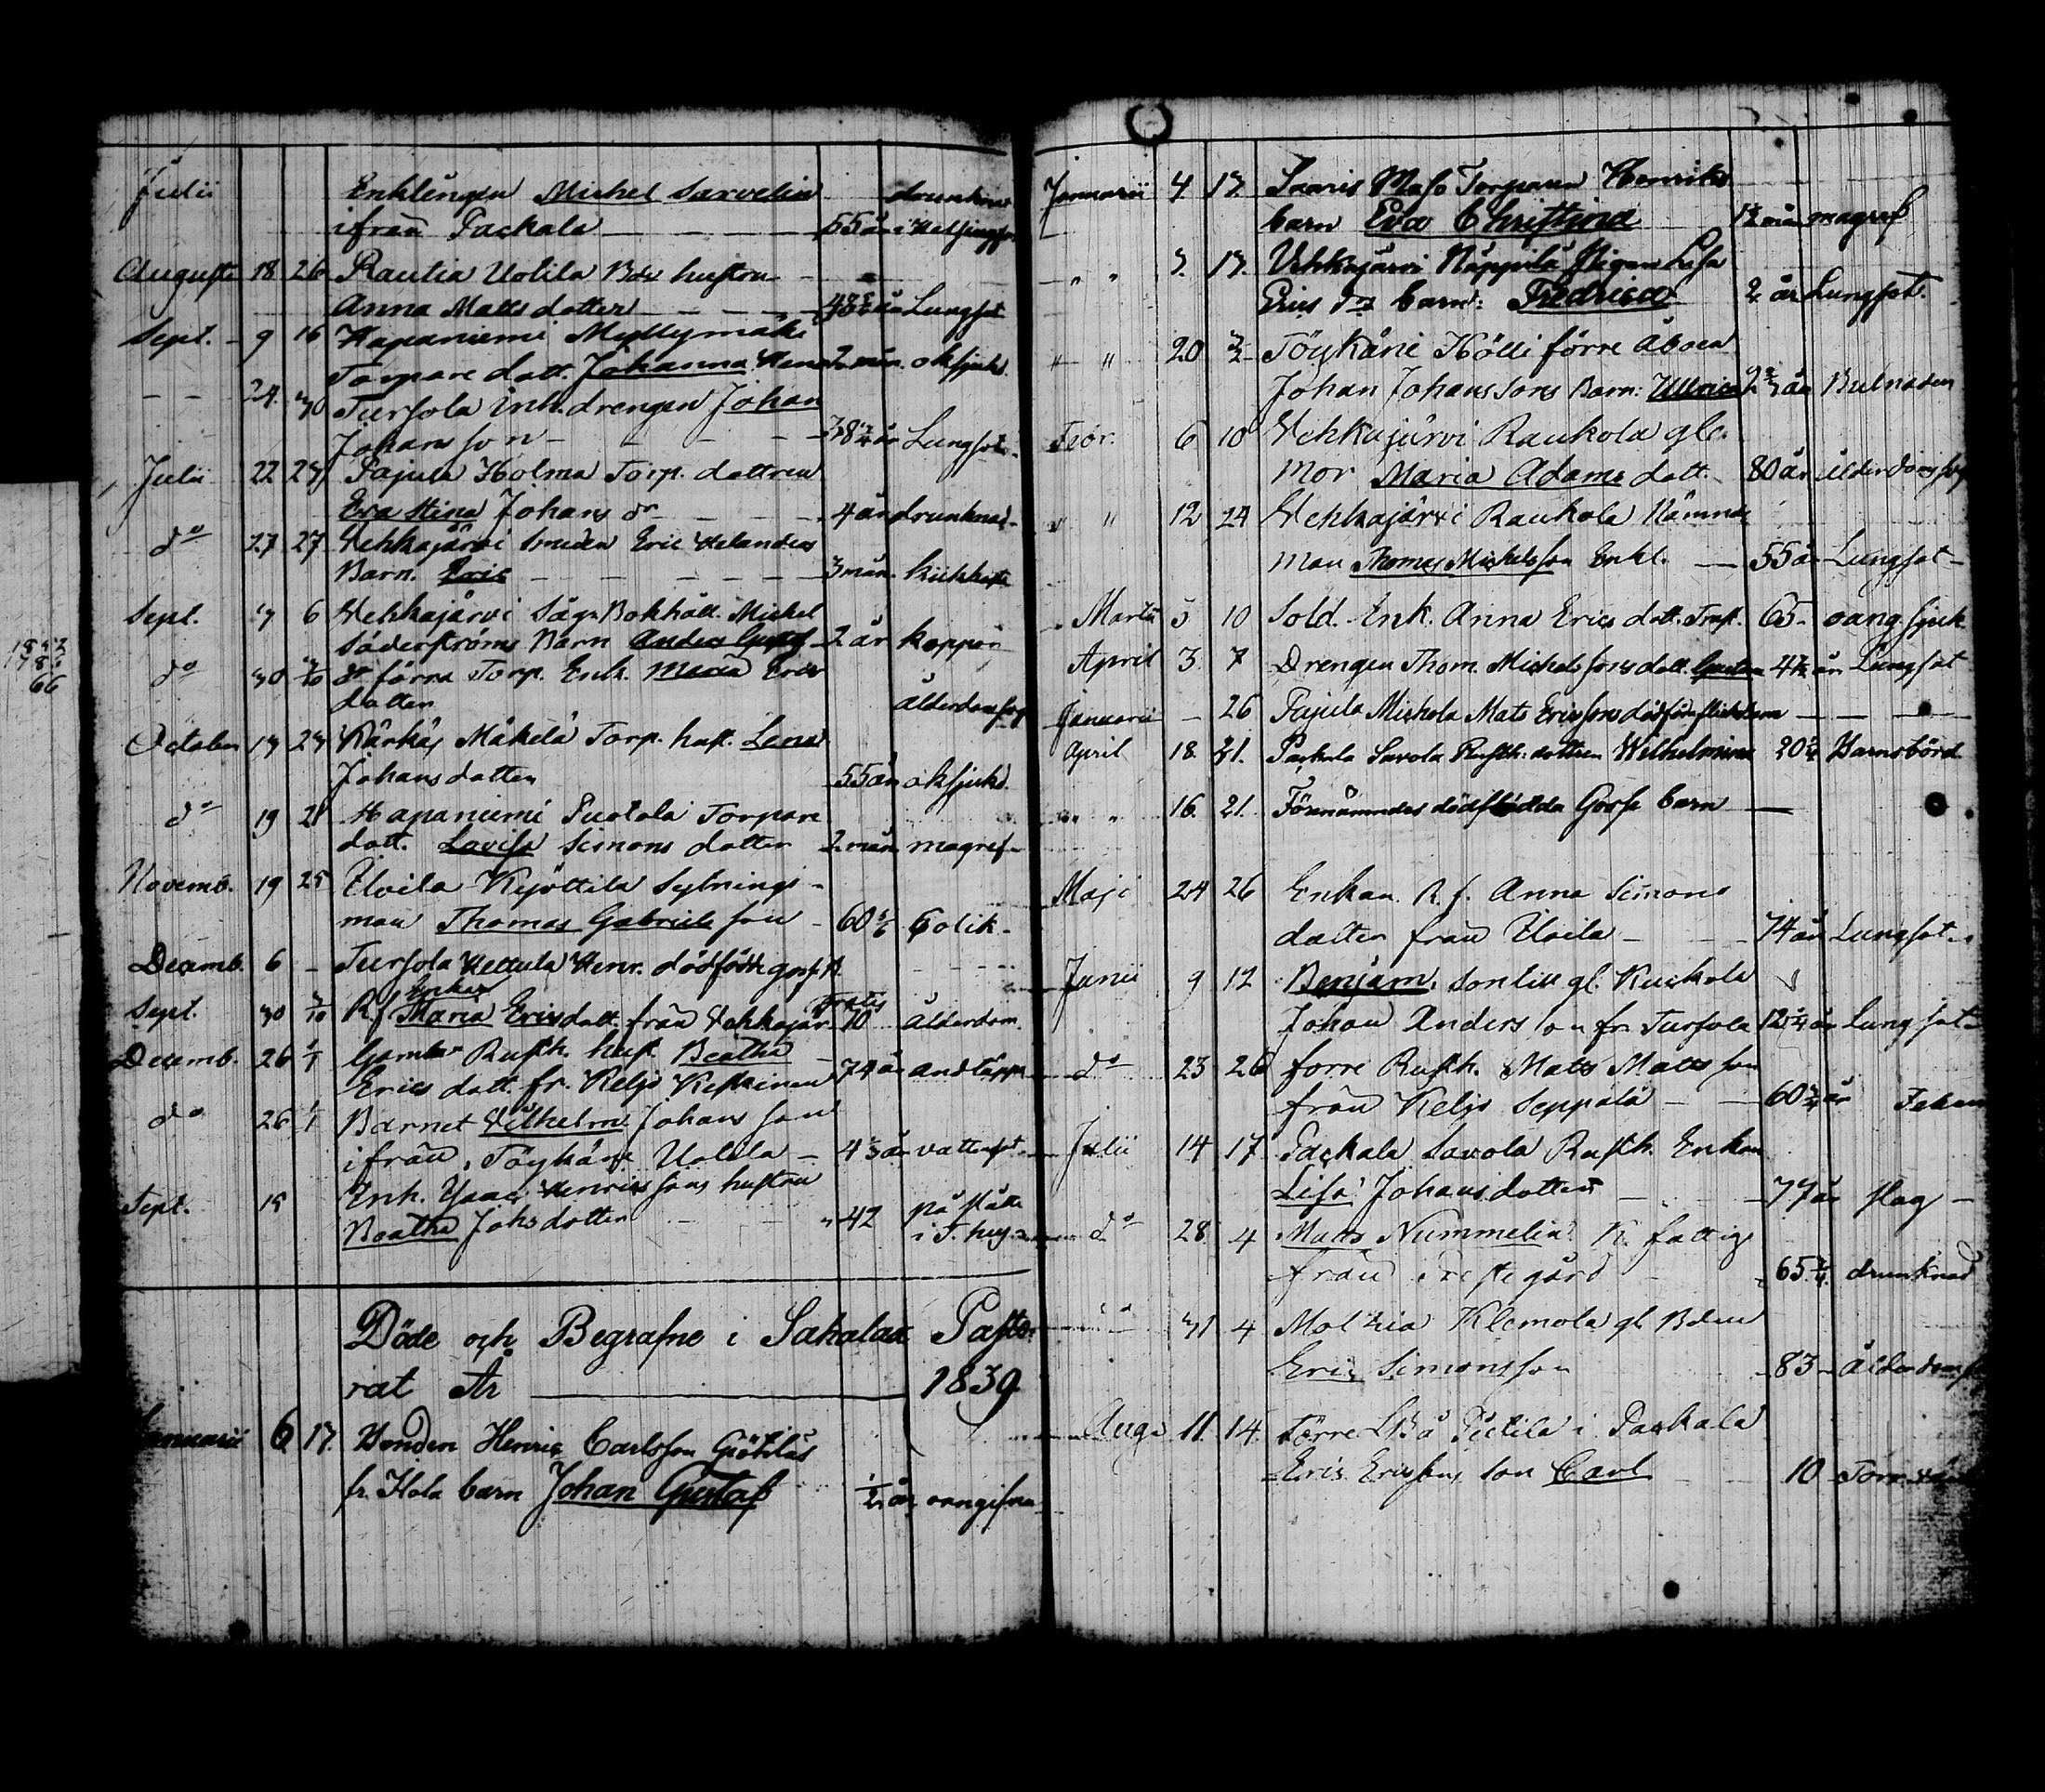 Julii Enklingen Michel Sarvelin drunknat
ifrån Packala 55 år i Helsingfors
Augusti 18 26 Rautia Uotila Bds hustru
Anna Matts dotter år Lungsot
Sept. 9 16 Hapaniemi Myllymäki
Torpare dott. Johanna 2 mån. oksjukd
24. 30 Tursola Inh. drengen Johan
Johansson 38 år Lungsot
Julii 22 23 Pajula Holma Torp. dottren
Eva Stina Johans dr 4 år drunknad
do 27 27 Vehkajärvi Smeden Eric Helanders
Barn. Eric 3 mån. kikhosta
Sept. 3 6 Vehkajärvi Sågs Bokhåll. Michel
Söderströms Barn Anders Gustaf 2 år koppor
do 30 3/10 do förra Torp. Enk. Maria Erics
dotter ålderdomsvag
October 13 23 Kärkäs Mäkelä Torp. hust. Lena
Johansdotter 55 år oksjukd.
do 19 21 Hapaniemi Puotola Torpare
dott. Lovisa Simons dotter 2 mån magref
Novemb. 19 25 Uoila Kyöttilä Sytnings-
man Thomas Gabriels son 60 Colik
Decemb. 6 Tursola Hettula Henr. dödfödde goss B.
Enkan
Sept. 30 3/10 R.f. Maria Ericsdott. från Vehkajär. 70 ålderdom
Decemb. 26 1/1 Gamla Rusth. hust. Beatha
Erics dott. fr. Keljo Keskinen 74 år andtäppa
do 26 1/1 Barnet Wilhelm Johans son
ifrån Töykäne Uotila 4 år vattusot
Sept. 15 Enk. Ysaac Henrics sons hustru
Beatha Johs dotter 42 på
i T. hus

Döde och Begrafne i Sahalax Pasto-
rat År 1839
Januarii 6 13. Bonden Henric Carlsson
fr. Isola barn Johan Gustaf 1/2 år oangifven

Januarii 4 13. Saaris Mass Torparen Henriks
barn Eva Christina 1 1/2 år magref
" " 7. 13. Vehkajärvi Näppilä Pigan Lisa
Erics drs barn: Fredrica 2 år Lungsot.
" " 20 3/2 Töykäne Hölli förre Åboen
Johan Johanssons Barn: Ullrica år Bulnaden
Febr. 6 10 Vehkajärvi Raukola gle.
mor Maria Adams dott. 80 år ålderdomsvag
" " 12 24 Vehkajärvi Raukola Nämnde
man Thomas Michelsson Enkl. 55 år Lungsot
Martii 5 10 Sold. Enk. Anna Erics dott. 65 oang. sjuk.
April 3. 7 Drengen Thom. Michelssons dott. Gustava år Lungsot
Januarii 26 Pajula Mickola Mats Erissons dödfödde flickebarn
April 18. 21. Packala Savola Rusth. dottren Wilhelmina 20 Barnsbörd
" " 16. 21. Förenämndes dödfödda Gosse barn
Maji 24 26 Enkan R. f. Anna Simons
dotter från Uoila 74 år Lungsot
Junii 9 12 Benjam. son till gl. Kuckola
Johan Anders son fr. Tursola 12 år Lungsot
do 23 26 förre Rusth. Matts Matts son
från Keljo Seppälä 60 år
Julii 14 17 Packala Savola Rusth. Enkan
Lisa Johansdotter 77 år slag
do 28 4 Matts Nummelin K. fattig
från Prestegård 65 drunknad
do 31 4 Moltzia Klemola gl Bden
Eric Simonsson 83 ålderdomsvag
Aug. 11. 14. förre Bd Putila i Packala
Eric Ericssons son Carl 10